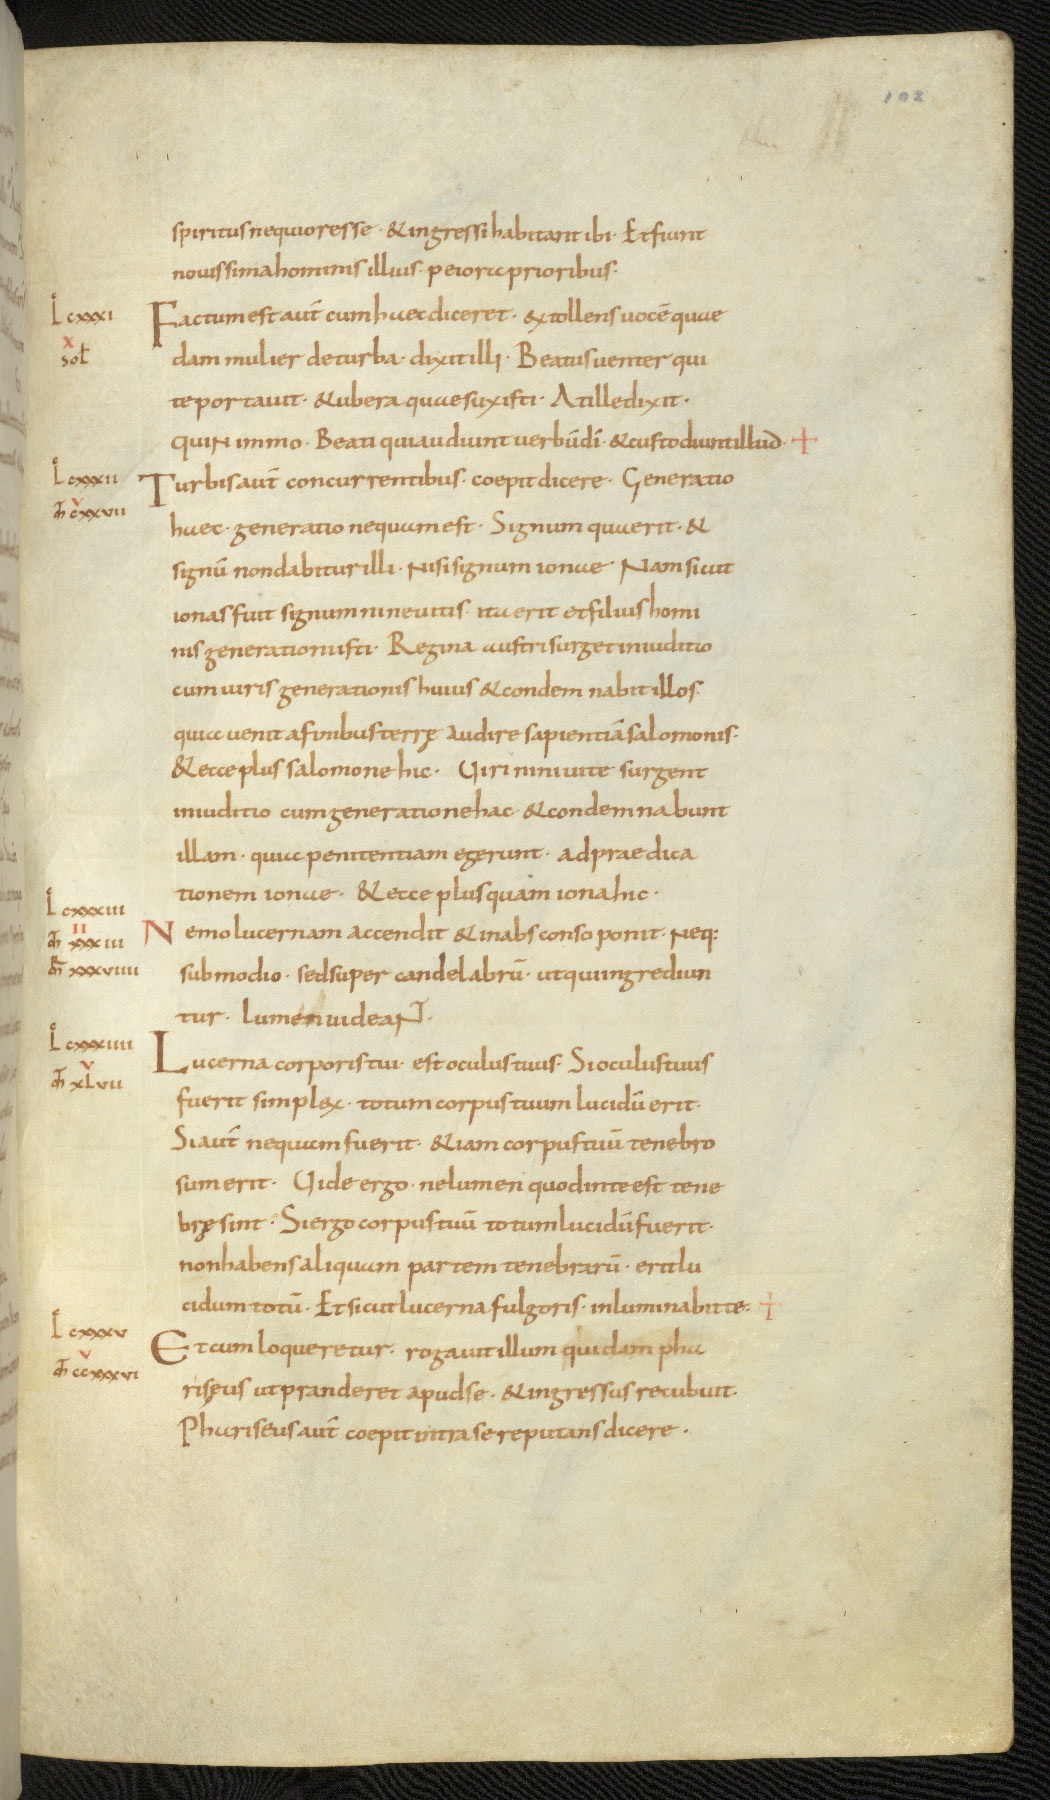 102
spiritus nequiores se · & ingressi habitant ibi · Et fiunt
nouissima hominis illius · peiora prioribus ·
L cxxxi
Factum est aut̄ cum haec diceret · extollens uocē quae
x
sol
dam mulier de turba · dixit illi · Beatus uenter qui
te portauit · & ubera quae suxisti · At ille dixit ·
quin immo · Beati qui audiunt uerbū dī · & custodiunt illud · +
L cxxxii
Turbis aut̄ concurrentibus · coepit dicere · Generatio
v
m̄ cxxvii
haec · generatio nequam est · Signum quaerit · &
signū non dabitur illi · nisi signum ionae · Nam sicut
ionas fuit signum nineuitis · ita erit et filius homi
nis generationi isti · Regina austri surget in iuditio
cum uiris generationis huius & condemnabit illos
quia uenit a finibus terrę audire sapientiā salomonis ·
& ecce plus salomone hic · Uiri niniuite surgent
in iuditio cum generatione hac · & condemnabunt
illam · quia penitentiam egerunt · ad praedica
tionem ionae · & ecce plus quam iona hic ·
L cxxxiii
Nemo lucernam accendit & in absconso ponit · neq:
ii
m̄ xxxiii
m̄ xxxviiii
sub modio · sed super candelabrū · ut qui ingrediun
tur · lumen uideant ·
L cxxxiiii
Lucerna corporis tui · est oculus tuus · Si oculus tuus
v
m̄ xlvii
fuerit simplex · totum corpus tuum lucidū erit ·
Si aut̄ nequam fuerit · & iam corpus tuū tenebro
sum erit · Uide ergo · ne lumen quod in te est tene
brę sint · Si ergo corpus tuū totum lucidū fuerit ·
non habens aliquam partem tenebrarū · erit lu
cidum totū · Et sicut lucerna fulgoris · inluminabit te · +
L cxxxv
Et cum loqueretur · rogauit illum quidam pha
v
m̄ ccxxxvi
risęus ut pranderet apud se · & ingressus recubuit ·
Phariseus aut̄ coepit intra se reputans dicere ·